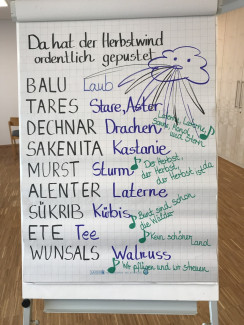 Da hat der Herbstwind
ordentlich gepustet
BALU Laub
TARES Stare, Aster
Laterne, Laterne,
Sonne, Mond
und Stern
DECHNAR Drachen
SAKENITA Kastanie
MURST Sturm
Der Herbst,
der Herbst,
der Herbst ist da
ALENTER Laterne
SÜKRIB Kürbis
Bunt sind schon
die Wälder
ETE Tee
Kein schöner
Land
WUNSALS Walnuss
Wir pflügen und wir streuen